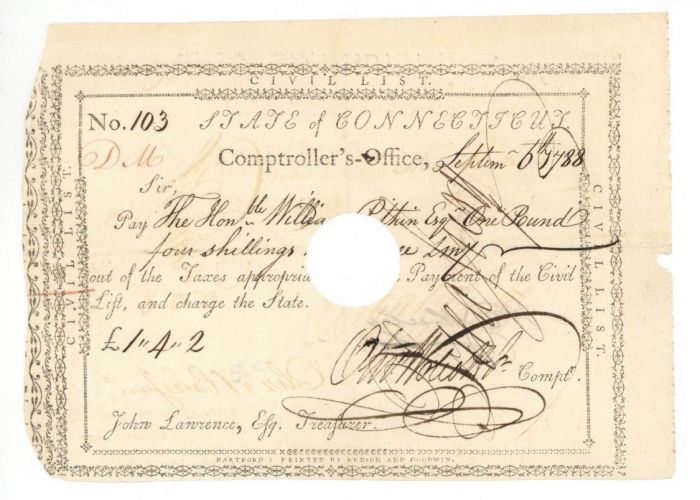 CIVIL LIST.
No. 103 STATE of CONNECTICUT
D M Comptroller's-Office, Septem 6th 1788
Sir,
Pay The Honble Willia Pitkin Esqr One Pound
four shillings
out of the Taxes appropria Payment of the Civil
List, and charge the State.
£1"4"2
Comptr.
John Lawrence, Esq. Treasurer.
HARTFORD: PRINTED BY HUDSON AND GOODWIN.
CIVIL LIST.
CIVIL LIST.